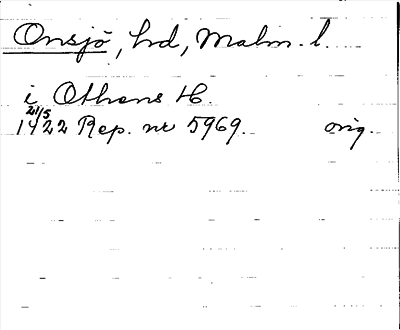 Onsjö, hd, Malm. l.
i Othens H.
21/5
1422 Rep. nr 5969. orig.